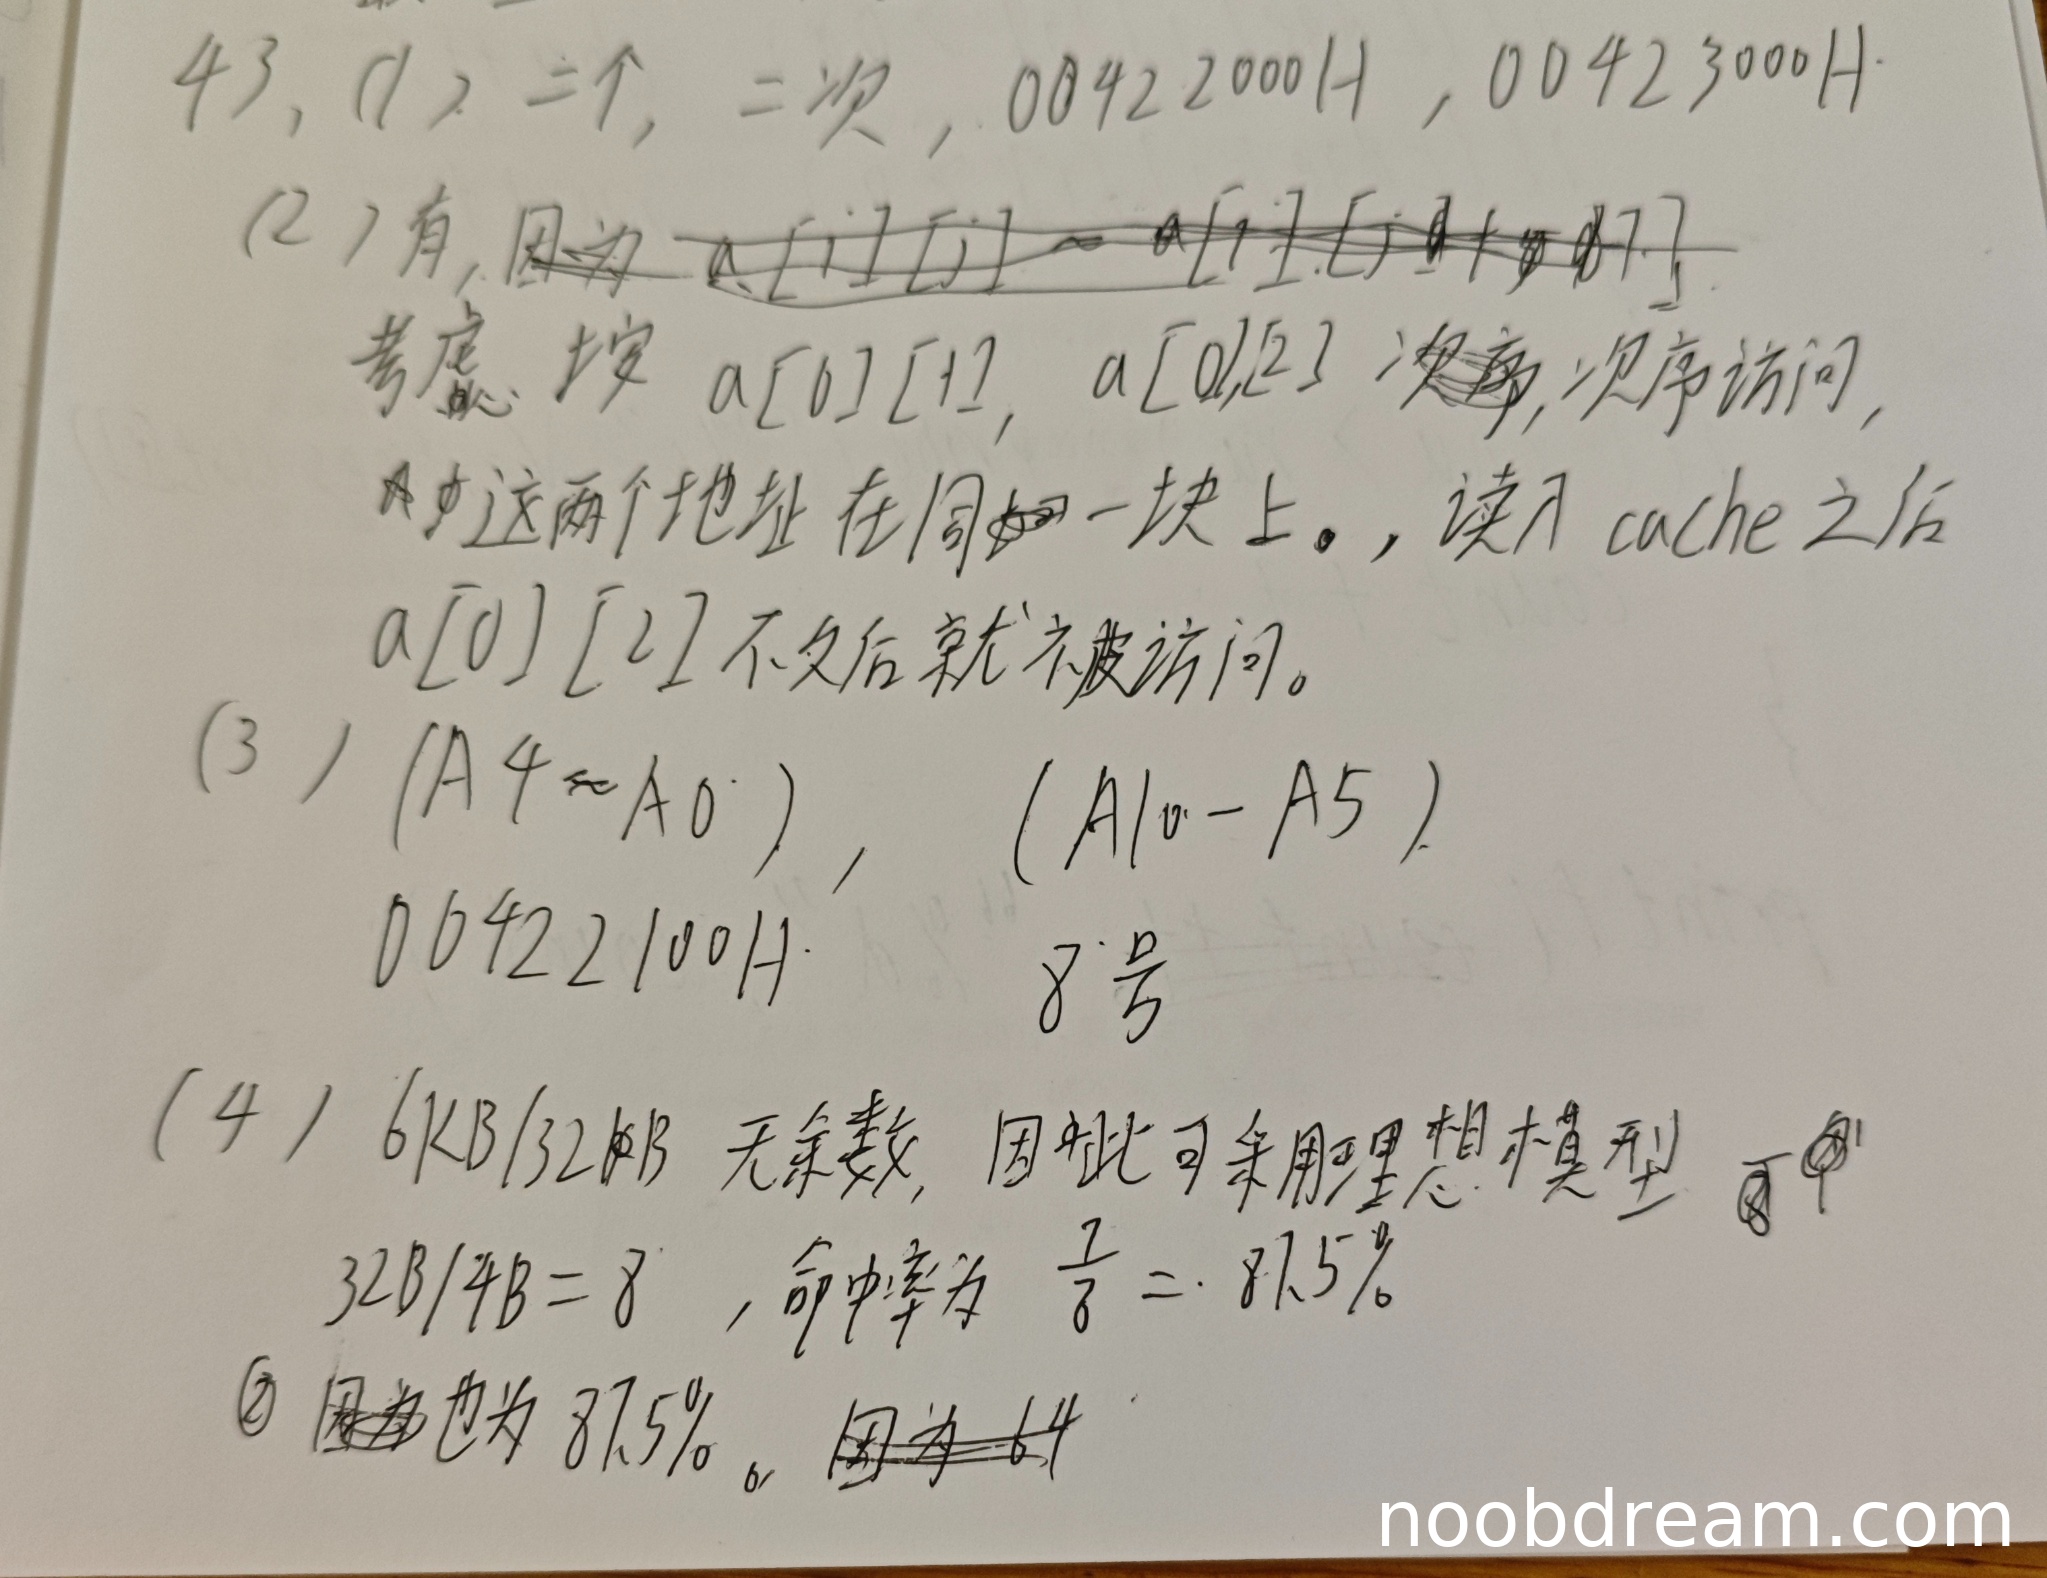 43, (1) 二个, 二次, 00422000H, 00423000H.
(2) 有, 因为 a[i][j] ~ a[i][j+7]
考虑 按 a[0][1], a[0][2] 次序, 次序访问,
这两个地址在同一块上。, 读入 cache 之后
a[0][2] 不久后就被访问。
(3) (A4~A0), (A10-A5)
00422100H. 8号
(4) 6KB/32B 无余数, 因此可采用理想模型
32B/4B = 8, 命中率为 7/8 = 87.5%
② 因为也为 87.5%。 因为 64
noobdream.com